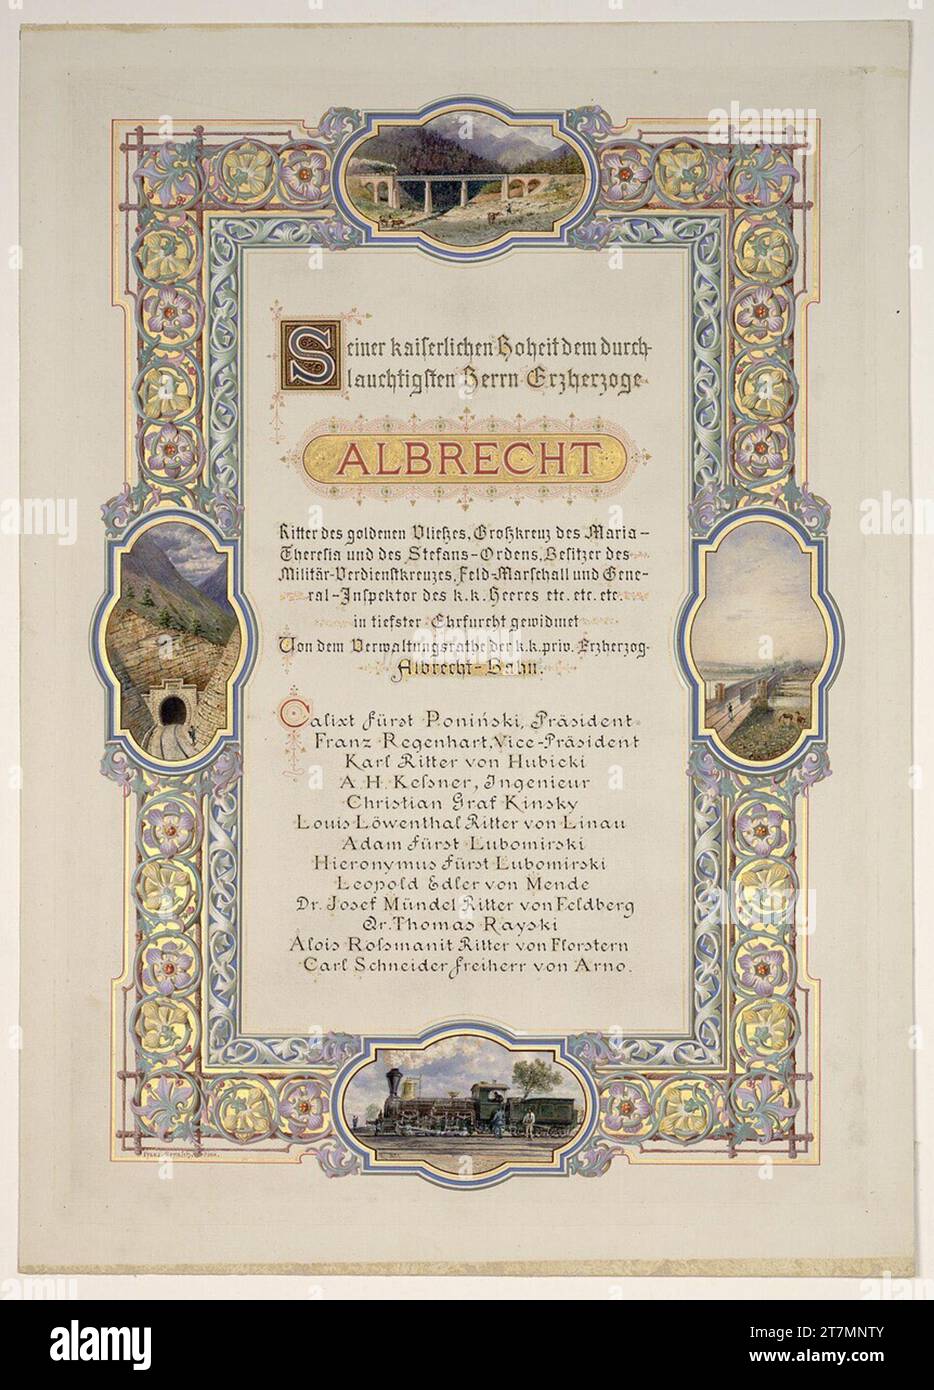 Seiner kaiserlichen Hoheit dem durch-
lauchtigsten Herrn Erzherzoge
ALBRECHT
Ritter des goldenen Vließes, Großkreuz des Maria-
Theresia und des Stefans-Ordens, Besitzer des
Militär-Verdienstkreuzes, Feld-Marschall und Gene-
ral-Inspektor des k.k. Heeres etc. etc. etc.
in tiefster Ehrfurcht gewidmet
Von dem Verwaltungsrathe der k.k. priv. Erzherzog-
Albrecht-Bahn.
Calixt Fürst Poniński, Präsident
Franz Regenhart, Vice-Präsident
Karl Ritter von Hubicki
A. H. Kessner, Ingenieur
Christian Graf Kinsky
Louis Löwenthal Ritter von Linau
Adam Fürst Lubomirski
Hieronymus Fürst Lubomirski
Leopold Edler von Mende
Dr. Josef Mündel Ritter von Feldberg
Dr. Thomas Rayski
Alois Rossmanit Ritter von Florstern
Carl Schneider Freiherr von Arno.
alamy
Image ID: 2T7MNTY
www.alamy.com